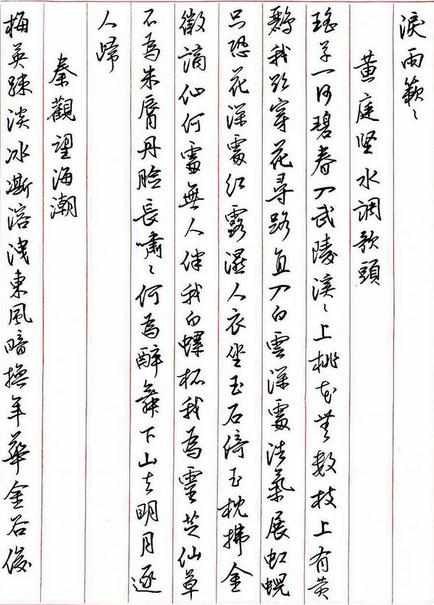 淚雨簌々
黄庭坚水调歌頭
瑶草一何碧春入武陵溪々上桃花無數枝上有黄
鸝我欲穿花尋路直入白雲深處浩氣展虹蜺
只恐花深處红露濕人衣坐玉石倚玉枕拂金
徽謫仙何處無人伴我白螺杯我為靈芝仙草
不為朱脣丹臉長嘯々何為醉舞下山去明月逐
人歸
秦觀望海潮
梅英疎淡冰澌溶洩東風暗換年華金谷俊